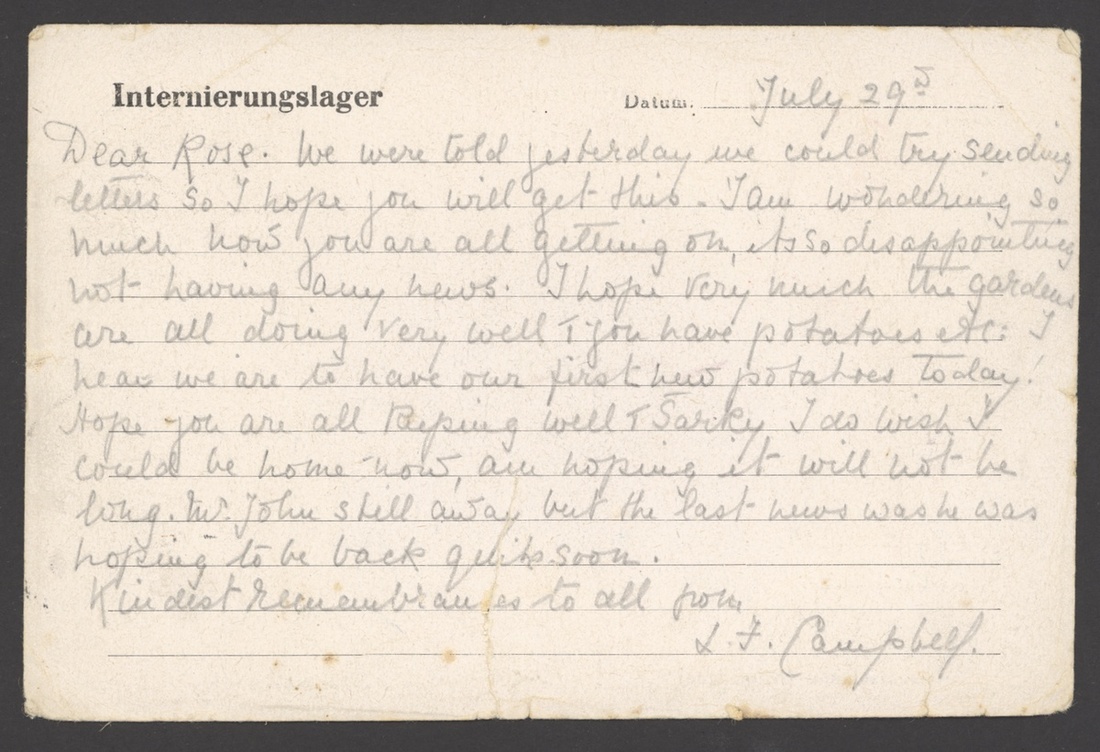 Internierungslager Datum. July 29
Dear Rose. We were told yesterday we could try sending
letters so I hope you will get this - I am wondering so
much how you are all getting on, its so disappointing
not having any news. I hope very much the gardens
are all doing very well & you have potatoes etc: I
hear we are to have our first new potatoes today!
Hope you are all keeping well & Sarky I do wish I
could be home now, am hoping it will not be
long. Mr. John still away but the last news was he was
hoping to be back quite soon.
Kindest remembrances to all from
L. F. Campbell.